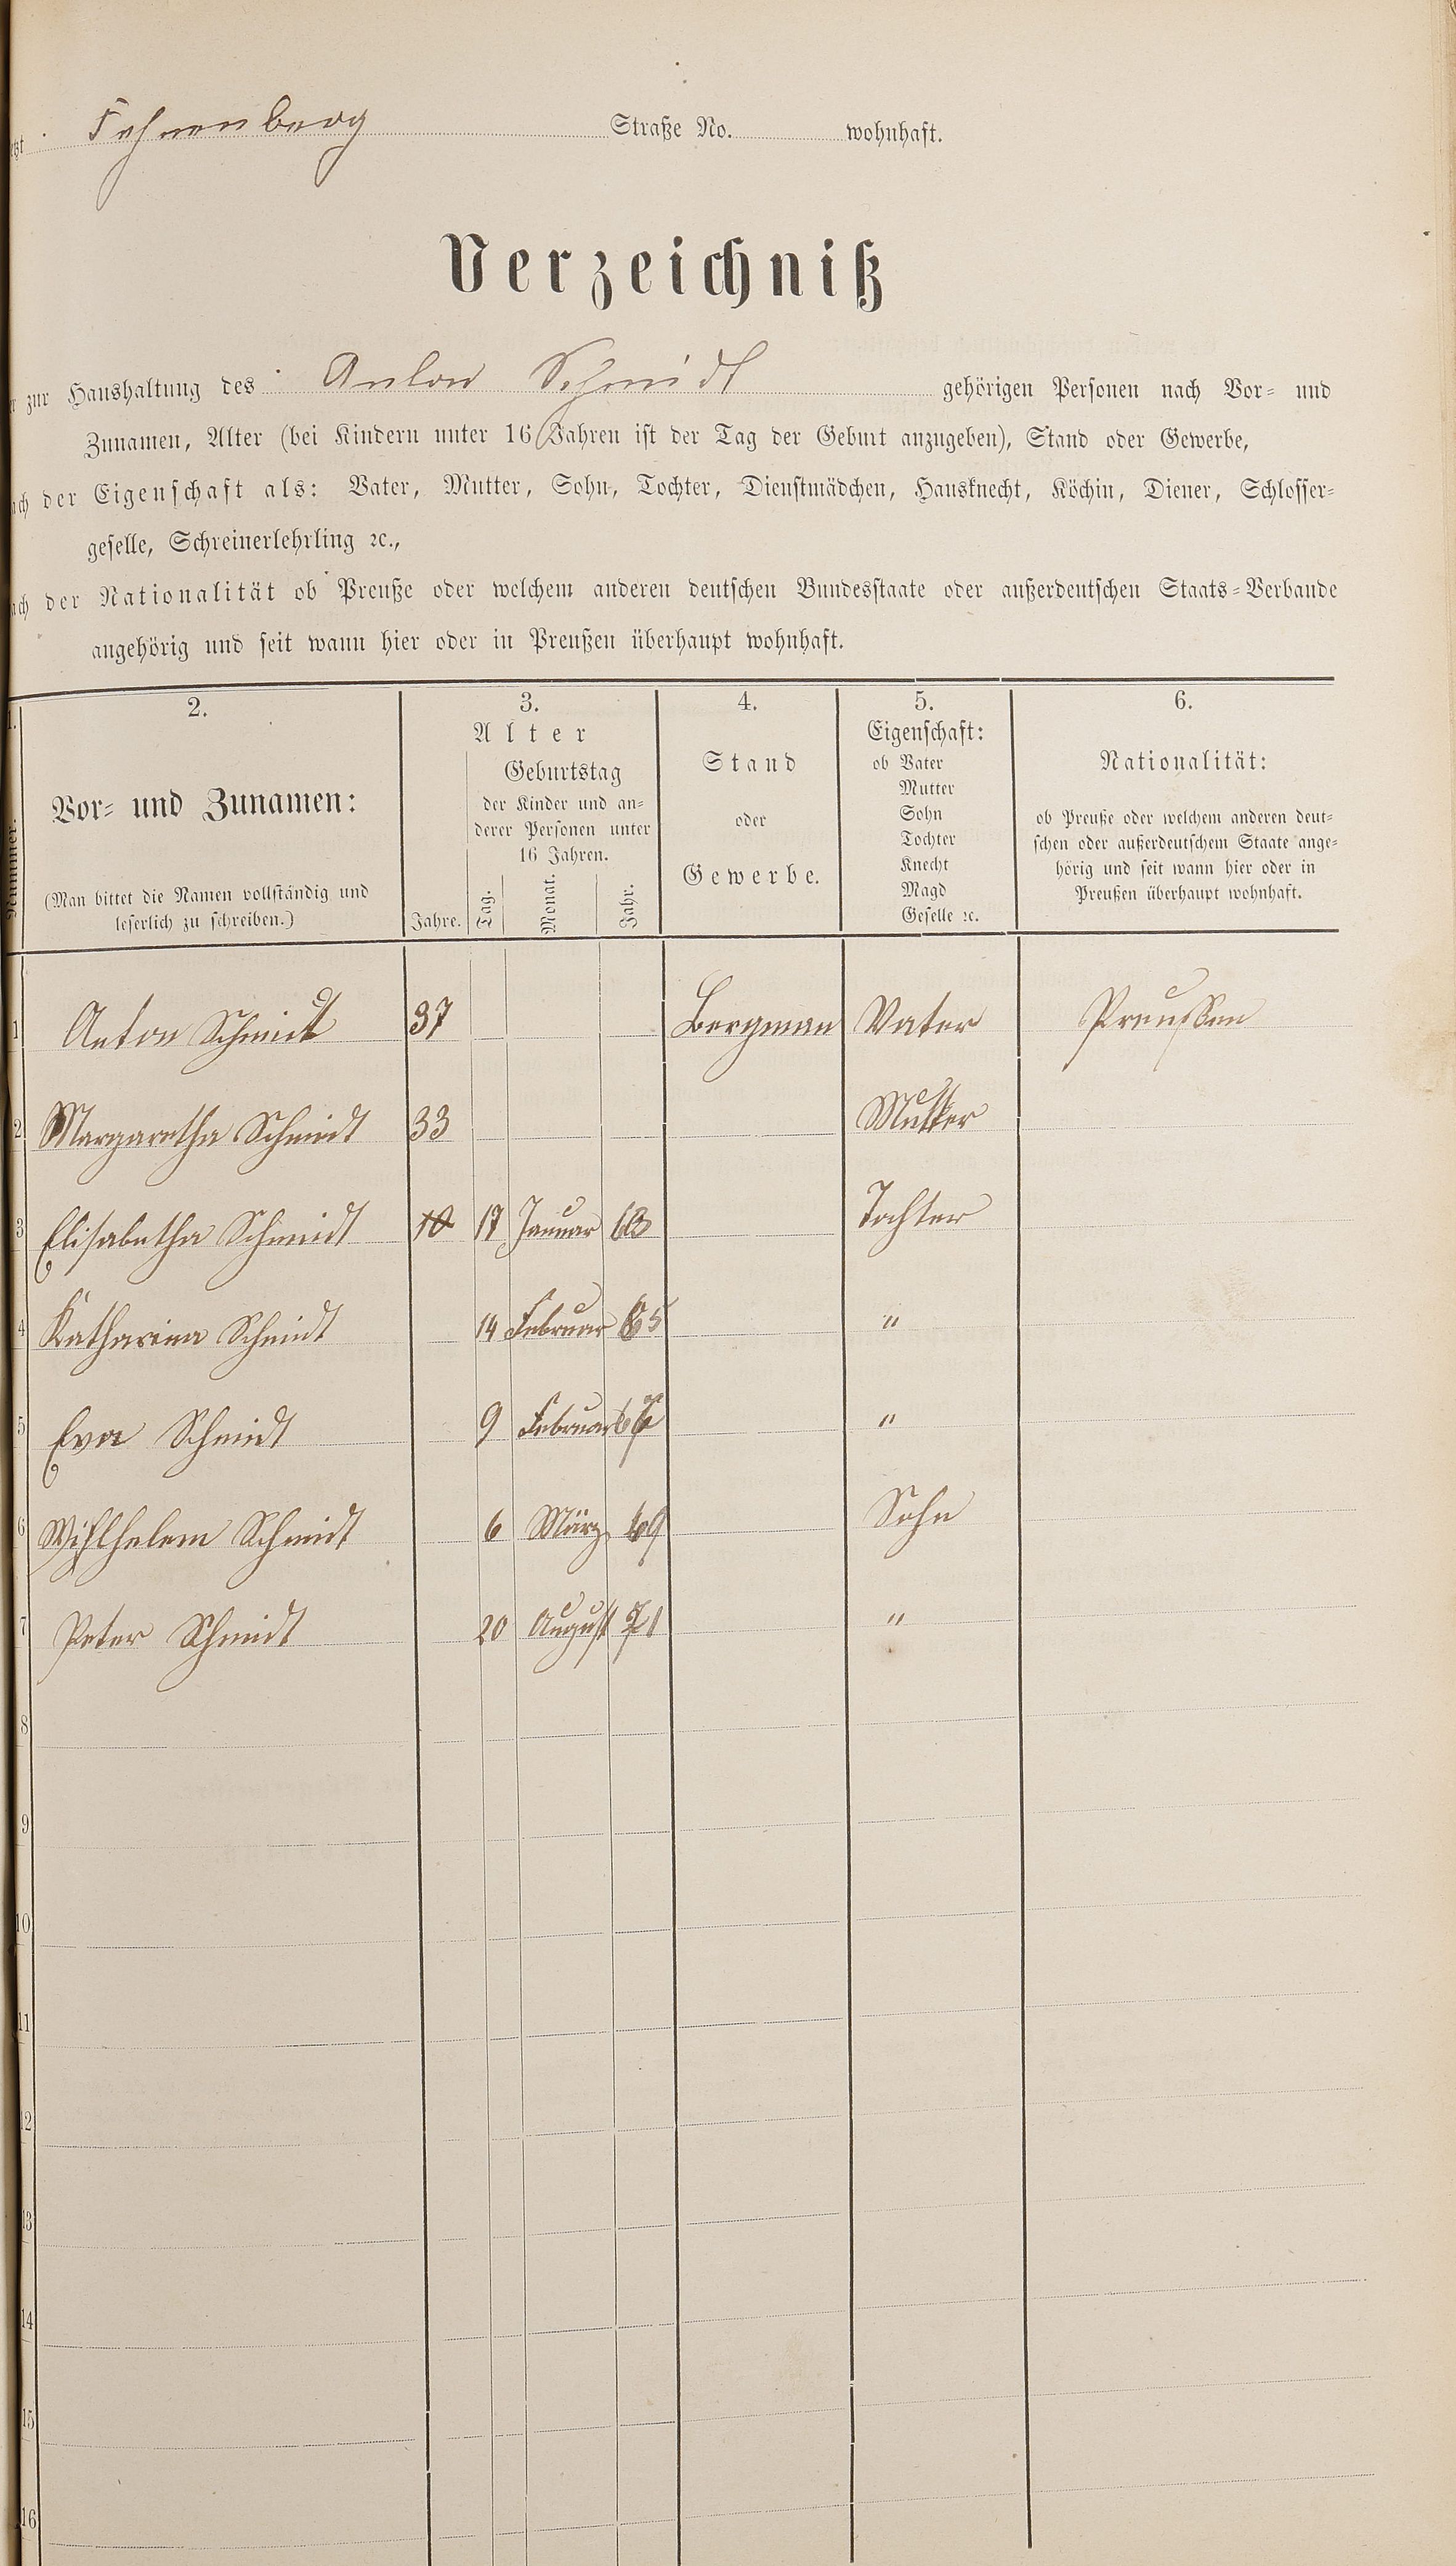 Fehrenberg Straße No. wohnhaft.
Verzeichniß
zur Haushaltung des Anton Schmidt gehörigen Personen nach Vor- und
Zunamen, Alter (bei Kindern unter 16 Jahren ist der Tag der Geburt anzugeben), Stand oder Gewerbe,
der Eigenschaft als: Vater, Mutter, Sohn, Tochter, Dienstmädchen, Hausknecht, Köchin, Diener, Schlosser-
geselle, Schreinerlehrling ꝛc.,
der Nationalität ob Preuße oder welchem anderen deutschen Bundesstaate oder außerdeutschen Staats-Verbande
angehörig und seit wann hier oder in Preußen überhaupt wohnhaft.
1. 2. 3. 4. 5. 6.
Nummer.
Vor- und Zunamen:
(Man bittet die Namen vollständig und
leserlich zu schreiben.)
Alter
Jahre.
Geburtstag
der Kinder und an-
derer Personen unter
16 Jahren.
Tag. Monat. Jahr.
Stand
oder
Gewerbe.
Eigenschaft:
ob Vater
Mutter
Sohn
Tochter
Knecht
Magd
Geselle ꝛc.
Nationalität:
ob Preuße oder welchem anderen deut-
schen oder außerdeutschem Staate ange-
hörig und seit wann hier oder in
Preußen überhaupt wohnhaft.
1 Anton Schmidt 37 Bergman Vater Preussen
2 Margaretha Schmidt 33 Mutter
3 Elisabetha Schmidt 10 17 Januar 63 Tochter
4 Katharina Schmidt 14 Februar 65 "
5 Eva Schmidt 9 Februar 67 "
6 Wihlhelem Schmidt 6 März 69 Sohn
7 Peter Schmidt 20 August 71 "
8
9
10
11
12
13
14
15
16